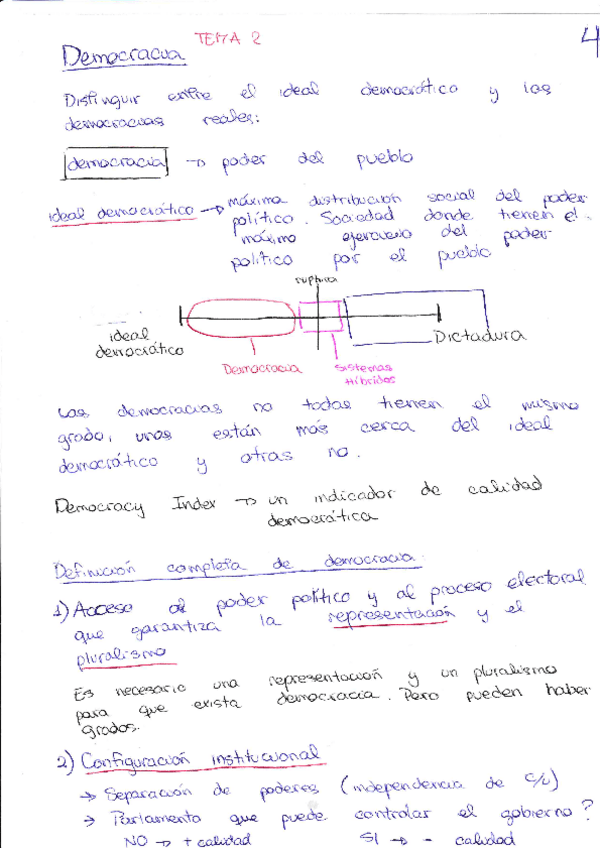 TEMA 2
4
Democracia
Distinguir entre el ideal democrático y las
democracias reales:
democracia → poder del pueblo
ideal democrático → máxima distribución social del poder
político. Sociedad donde tienen el
máximo ejercicio del poder
político por el pueblo
ruptura
ideal
democrático
Dictadura
Democracia
Sistemas
Híbridos
Las democracias no todas tienen el mismo
grado, unas están más cerca del ideal
democrático y otras no.
Democracy Index → un indicador de calidad
democrática
Definición completa de democracia:
1) Acceso al poder político y al proceso electoral
que garantiza la representación y el
pluralismo
Es necesario una representación y un pluralismo
para que exista democracia. Pero pueden haber
grados.
2) Configuración institucional
→ Separación de poderes (independencia de c/u)
→ Parlamento que puede controlar el gobierno?
NO → + calidad SI → - calidad